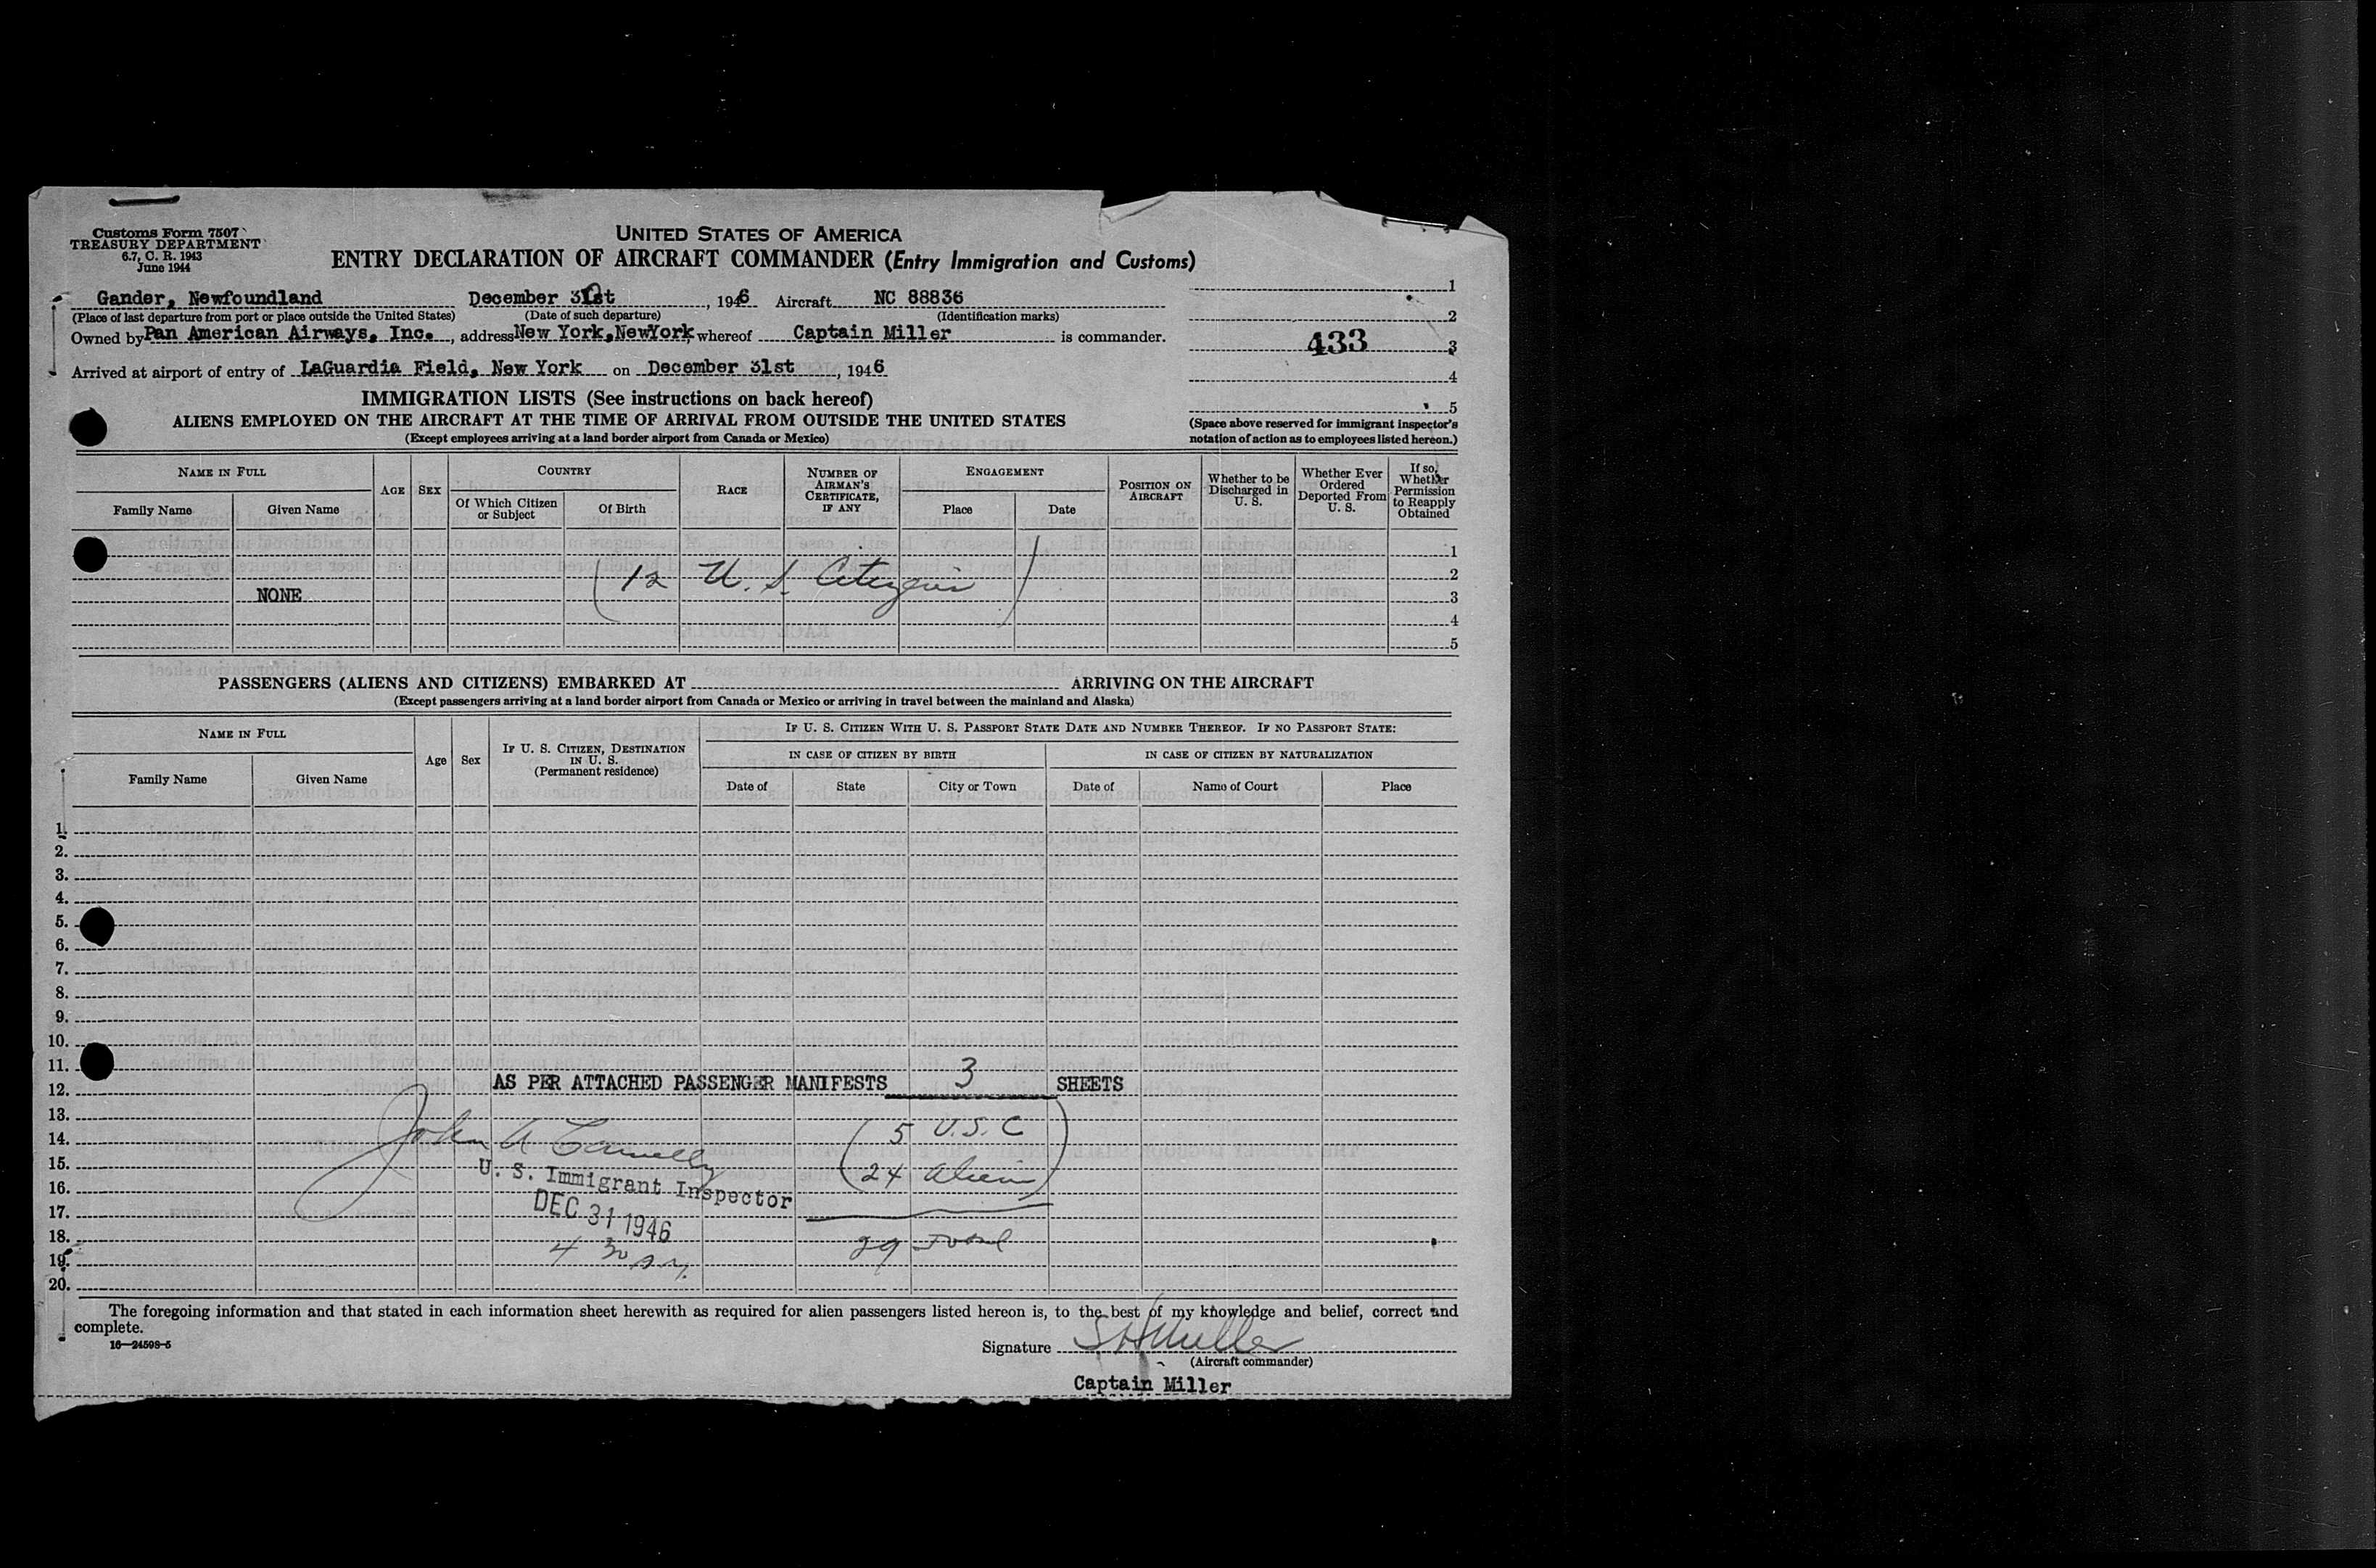 Customs Form 7507
TREASURY DEPARTMENT
6.7, C. R. 1943
June 1944
UNITED STATES OF AMERICA
ENTRY DECLARATION OF AIRCRAFT COMMANDER (Entry Immigration and Customs)
Gander, Newfoundland December 31st, 1946 Aircraft NC 88836
(Place of last departure from port or place outside the United States) (Date of such departure) (Identification marks)
Owned by Pan American Airways, Inc., address New York, NewYork whereof Captain Miller is commander.
Arrived at airport of entry of LaGuardia Field, New York on December 31st, 1946
1
2
433 3
4
5
(Space above reserved for immigrant inspector's
notation of action as to employees listed hereon.)
IMMIGRATION LISTS (See instructions on back hereof)
ALIENS EMPLOYED ON THE AIRCRAFT AT THE TIME OF ARRIVAL FROM OUTSIDE THE UNITED STATES
(Except employees arriving at a land border airport from Canada or Mexico)
NAME IN FULL AGE SEX COUNTRY RACE NUMBER OF AIRMAN'S CERTIFICATE, IF ANY ENGAGEMENT POSITION ON AIRCRAFT Whether to be Discharged in U. S. Whether Ever Ordered Deported From U. S. If so, Whether Permission to Reapply Obtained
Family Name Given Name Of Which Citizen or Subject Of Birth Place Date
1
(12 U. S. Citizens) 2
NONE 3
4
5
PASSENGERS (ALIENS AND CITIZENS) EMBARKED AT ARRIVING ON THE AIRCRAFT
(Except passengers arriving at a land border airport from Canada or Mexico or arriving in travel between the mainland and Alaska)
NAME IN FULL Age Sex IF U. S. CITIZEN, DESTINATION IN U. S. (Permanent residence) IF U. S. CITIZEN WITH U. S. PASSPORT STATE DATE AND NUMBER THEREOF. IF NO PASSPORT STATE:
IN CASE OF CITIZEN BY BIRTH IN CASE OF CITIZEN BY NATURALIZATION
Family Name Given Name Date of State City or Town Date of Name of Court Place
1.
2.
3.
4.
5.
6.
7.
8.
9.
10.
11.
12. AS PER ATTACHED PASSENGER MANIFESTS 3 SHEETS
13.
14. John A Connelly (5 U.S.C
15. U. S. Immigrant Inspector 24 Aliens)
16.
17. DEC 31 1946
18. 29 Total
19. 4 30 AM.
20.
The foregoing information and that stated in each information sheet herewith as required for alien passengers listed hereon is, to the best of my knowledge and belief, correct and
complete.
16—24598-5
Signature S H Miller
(Aircraft commander)
Captain Miller